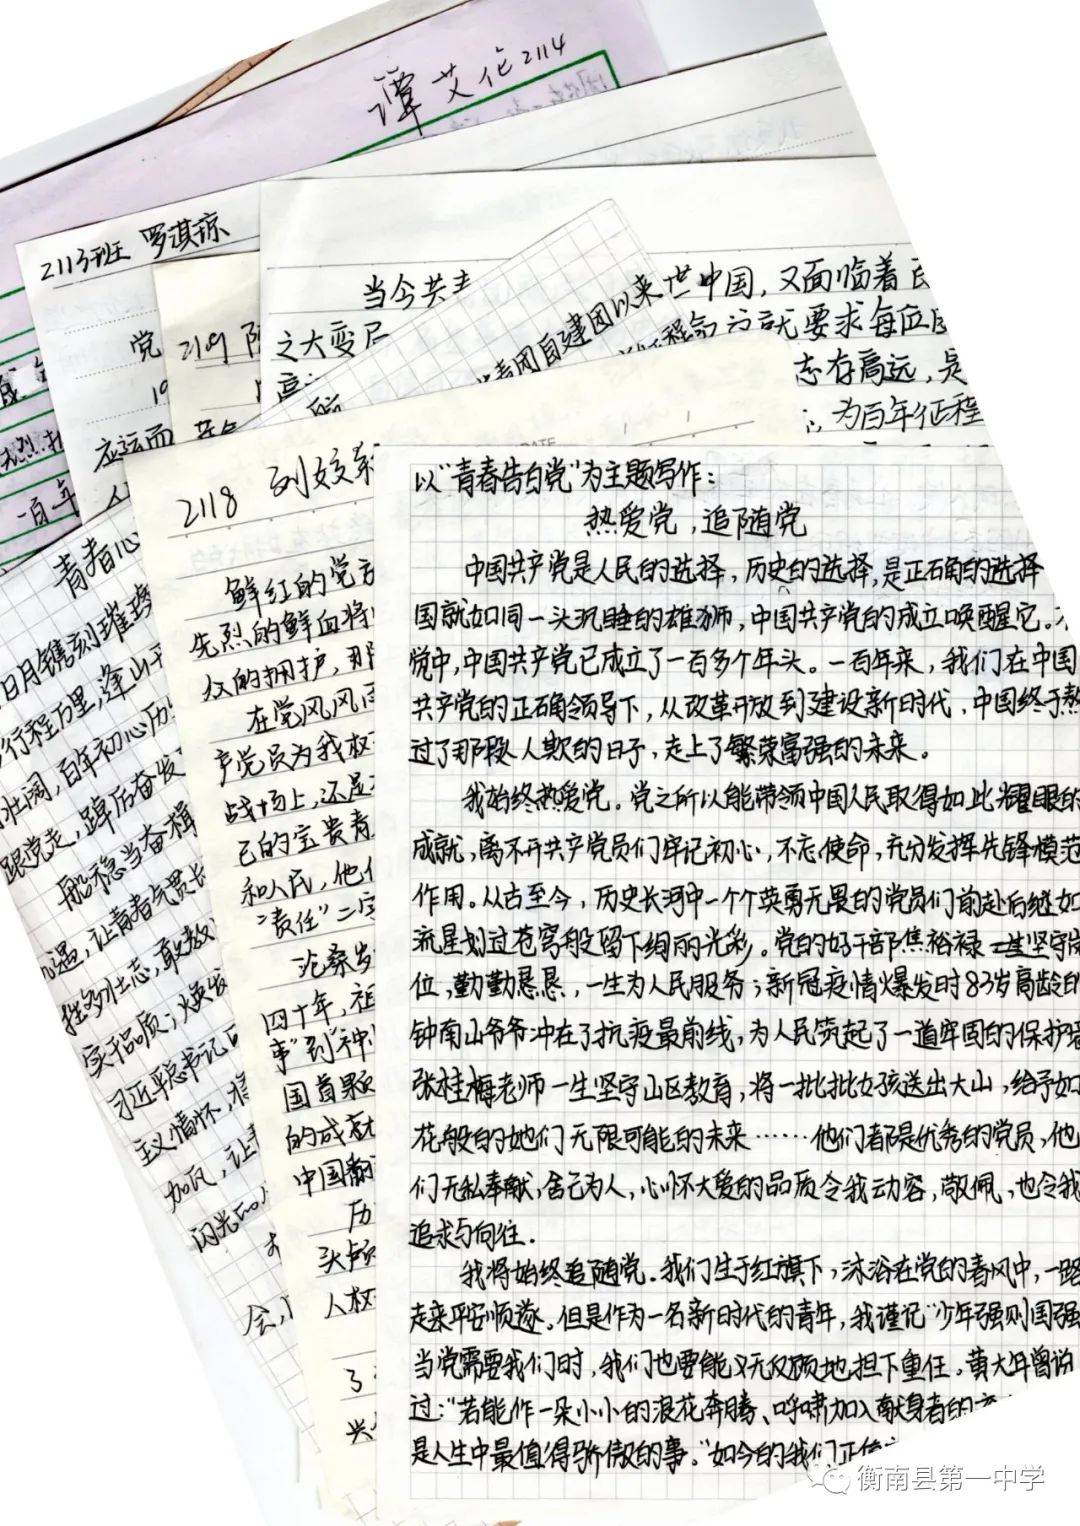 谭艾伦2114
2113班 罗淇琼
党
19
应运而
2109 陈
当今共
之大变局
世中国，又面临着
青网自建团以来
就要求每位
志存高远，是
，为百年征程
百年
青者心
日月镌刻璀璨
行程万里，逢山开
壮阔，百年初心历
跟党走，踔厉奋发
船稳当奋楫
遇，让青春气贯长
性多壮志，敢教
实干品质；焕发
习近平总书记
主义情怀，
加风，让
闪光的
会，
2118 刘姣
鲜红的党旗
先烈的鲜血将
众的拥护，那
在党风风雨
产党员为我权
战场上，还是
己的宝贵青
和人民，他们
“责任”二字
沧桑岁
四十年，祖
事”到神
国首颗
的成就
中国翻
历
头颅
人权
了
兴
以“青春告白党”为主题写作：
热爱党，追随党
中国共产党是人民的选择，历史的选择，是正确的选择
国就如同一头沉睡的雄狮，中国共产党的成立唤醒它。不
觉中，中国共产党已成立了一百多个年头。一百年来，我们在中国
共产党的正确领导下，从改革开放到建设新时代，中国终于熬
过了那段人欺的日子，走上了繁荣富强的未来。
我始终热爱党。党之所以能带领中国人民取得如此耀眼的
成就，离不开共产党员们牢记初心，不忘使命，充分发挥先锋模范
作用。从古至今，历史长河中一个个英勇无畏的党员们前赴后继如
流星划过苍穹般留下绚丽光彩。党的好干部焦裕禄一生坚守岗
位，勤勤恳恳，一生为人民服务；新冠疫情爆发时83岁高龄的
钟南山爷爷冲在了抗疫最前线，为人民筑起了一道牢固的保护
张桂梅老师一生坚守山区教育，将一批批女孩送出大山，给予如
花般的她们无限可能的未来……他们都是优秀的党员，他
们无私奉献，舍己为人，心怀大爱的品质令我动容，敬佩，也令我
追求与向往。
我将始终追随党。我们生于红旗下，沐浴在党的春风中，一路
走来平安顺遂。但是作为一名新时代的青年，我谨记“少年强则国强
当党需要我们时，我们也要能义无反顾地担下重任。黄大年曾说
过：“若能作一朵小小的浪花奔腾、呼啸加入献身者的
是人生中最值得骄傲的事。”如今的我们正值
衡南县第一中学